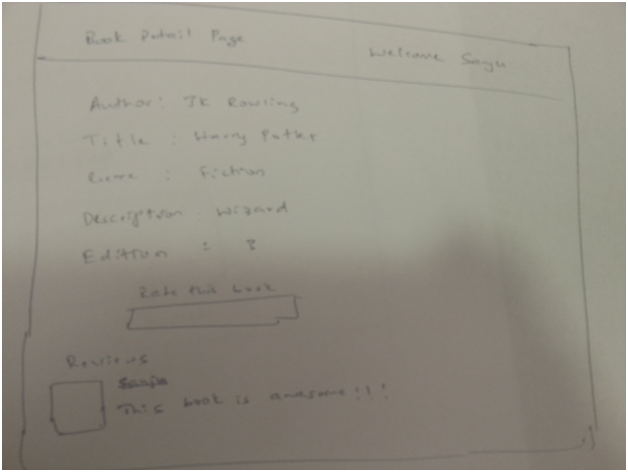 Book Detail Page
Welcome Sayu
Author: JK Rowling
Title : Harry Potter
Genre : Fiction
Description : Wizard
Edition :
Rate this book
Reviews
This book is awesome!!!